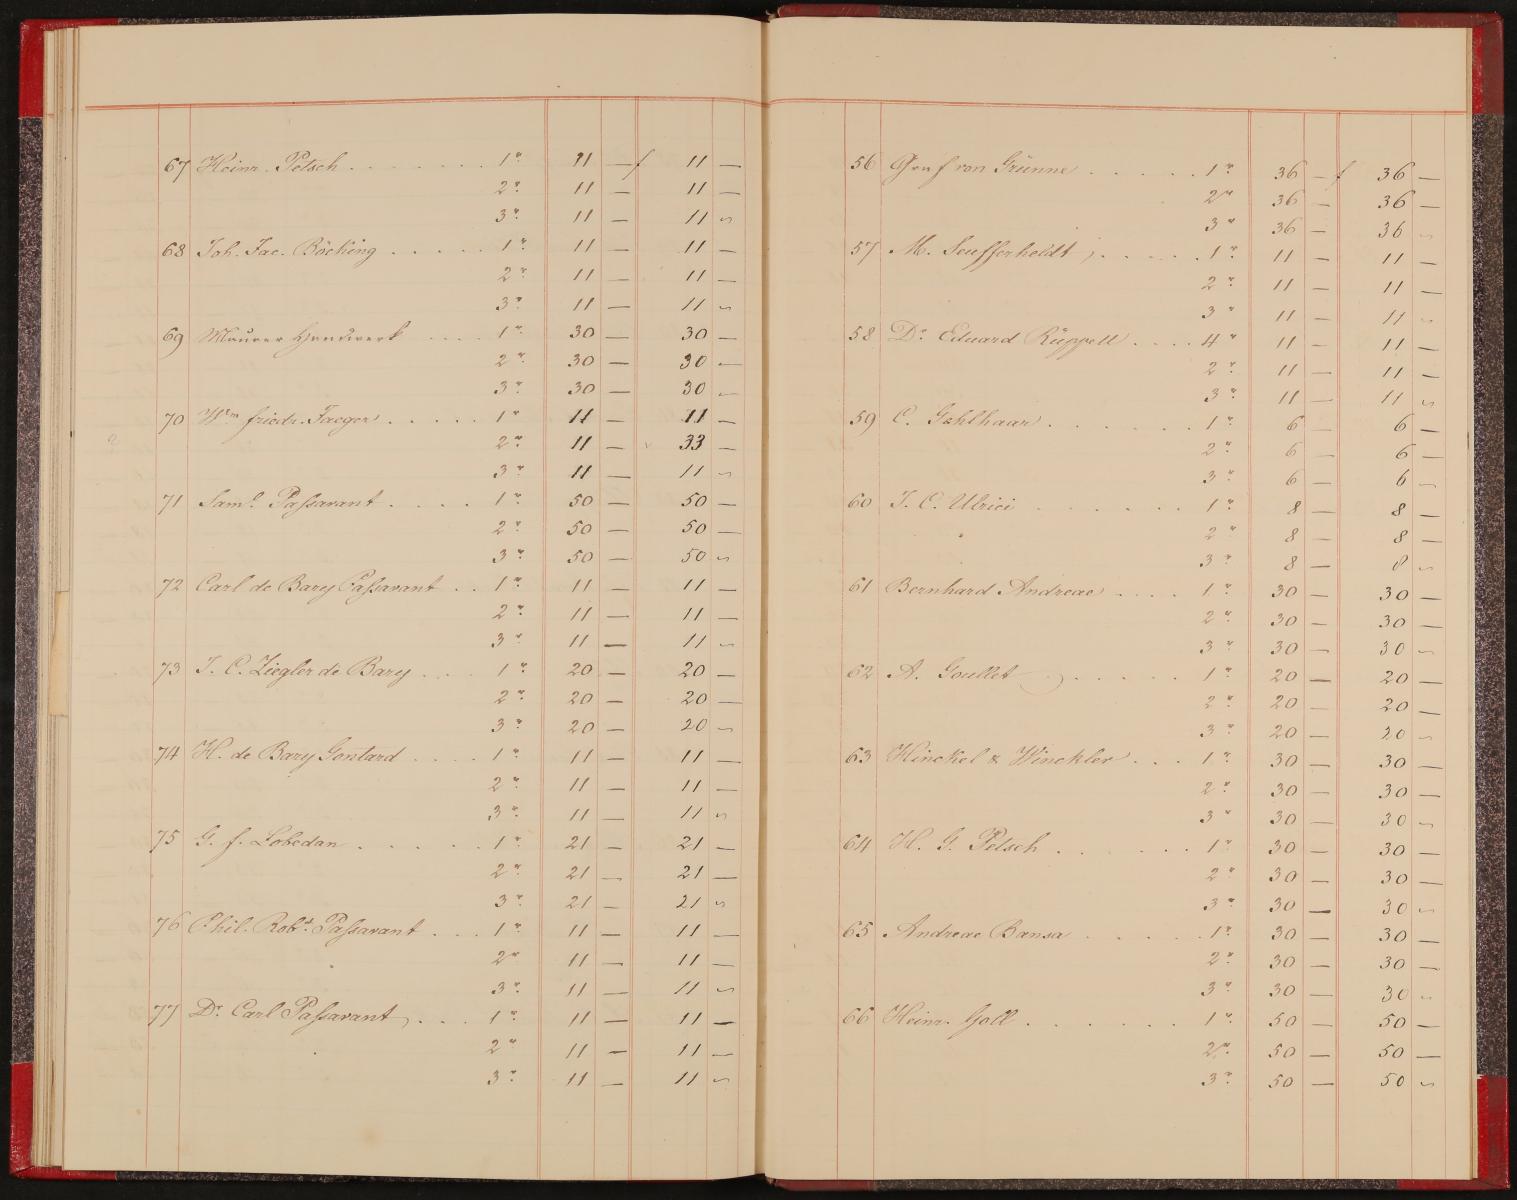 67 Heinr. Petsch . . . . . . . 1r 11 — f 11 —
2r 11 — 11 —
3r 11 — 11 ~
68 Joh. Jac. Böcking . . . . . 1r 11 — 11 —
2r 11 — 11 —
3r 11 — 11 ~
69 Maurer Handwerk . . . . 1r 30 — 30 —
2r 30 — 30 —
3r 30 — 30 ~
70 Wm friedr. Jaeger . . . . . 1r 11 — 11 —
2r 11 — 33 —
3r 11 — 11 ~
71 Saml. Passavant . . . . 1r 50 — 50 —
2r 50 — 50 —
3r 50 — 50 ~
72 Carl de Bary Passavant . . 1r 11 — 11 —
2r 11 — 11 —
3r 11 — 11 ~
73 J. C. Ziegler de Bary . . . 1r 20 — 20 —
2r 20 — 20 —
3r 20 — 20 ~
74 H. de Bary Gontard . . . . 1r 11 — 11 —
2r 11 — 11 —
3r 11 — 11 ~
75 G. f. Lobedan . . . . . . 1r 21 — 21 —
2r 21 — 21 —
3r 21 — 21 ~
76 Phil. Robt. Passavant . . . 1r 11 — 11 —
2r 11 — 11 —
3r 11 — 11 ~
77 Dr. Carl Passavant . . . 1r 11 — 11 —
2r 11 — 11 —
3r 11 — 11 ~
56 Graf von Grünne . . . . . 1r 36 — f 36 —
2r 36 — 36 —
3r 36 — 36 ~
57 M. Seufferheldt . . . . . 1r 11 — 11 —
2r 11 — 11 —
3r 11 — 11 ~
58 Dr. Eduard Rüppell . . . . 4r 11 — 11 —
2r 11 — 11 —
3r 11 — 11 ~
59 C. Gohlhaar . . . . . . . 1r 6 — 6 —
2r 6 — 6 —
3r 6 — 6 ~
60 J. C. Ulrici . . . . . . . 1r 8 — 8 —
2r 8 — 8 —
3r 8 — 8 ~
61 Bernhard Andreae . . . . 1r 30 — 30 —
2r 30 — 30 —
3r 30 — 30 ~
62 A. Goullet . . . . . . 1r 20 — 20 —
2r 20 — 20 —
3r 20 — 20 ~
63 Hinckel & Winckler . . . 1r 30 — 30 —
2r 30 — 30 —
3r 30 — 30 ~
64 H. G. Petsch . . . . . . 1r 30 — 30 —
2r 30 — 30 —
3r 30 — 30 ~
65 Andreae Bansa . . . . . 1r 30 — 30 —
2r 30 — 30 —
3r 30 — 30 ~
66 Heinr. Goll . . . . . . . 1r 50 — 50 —
2r 50 — 50 —
3r 50 — 50 ~